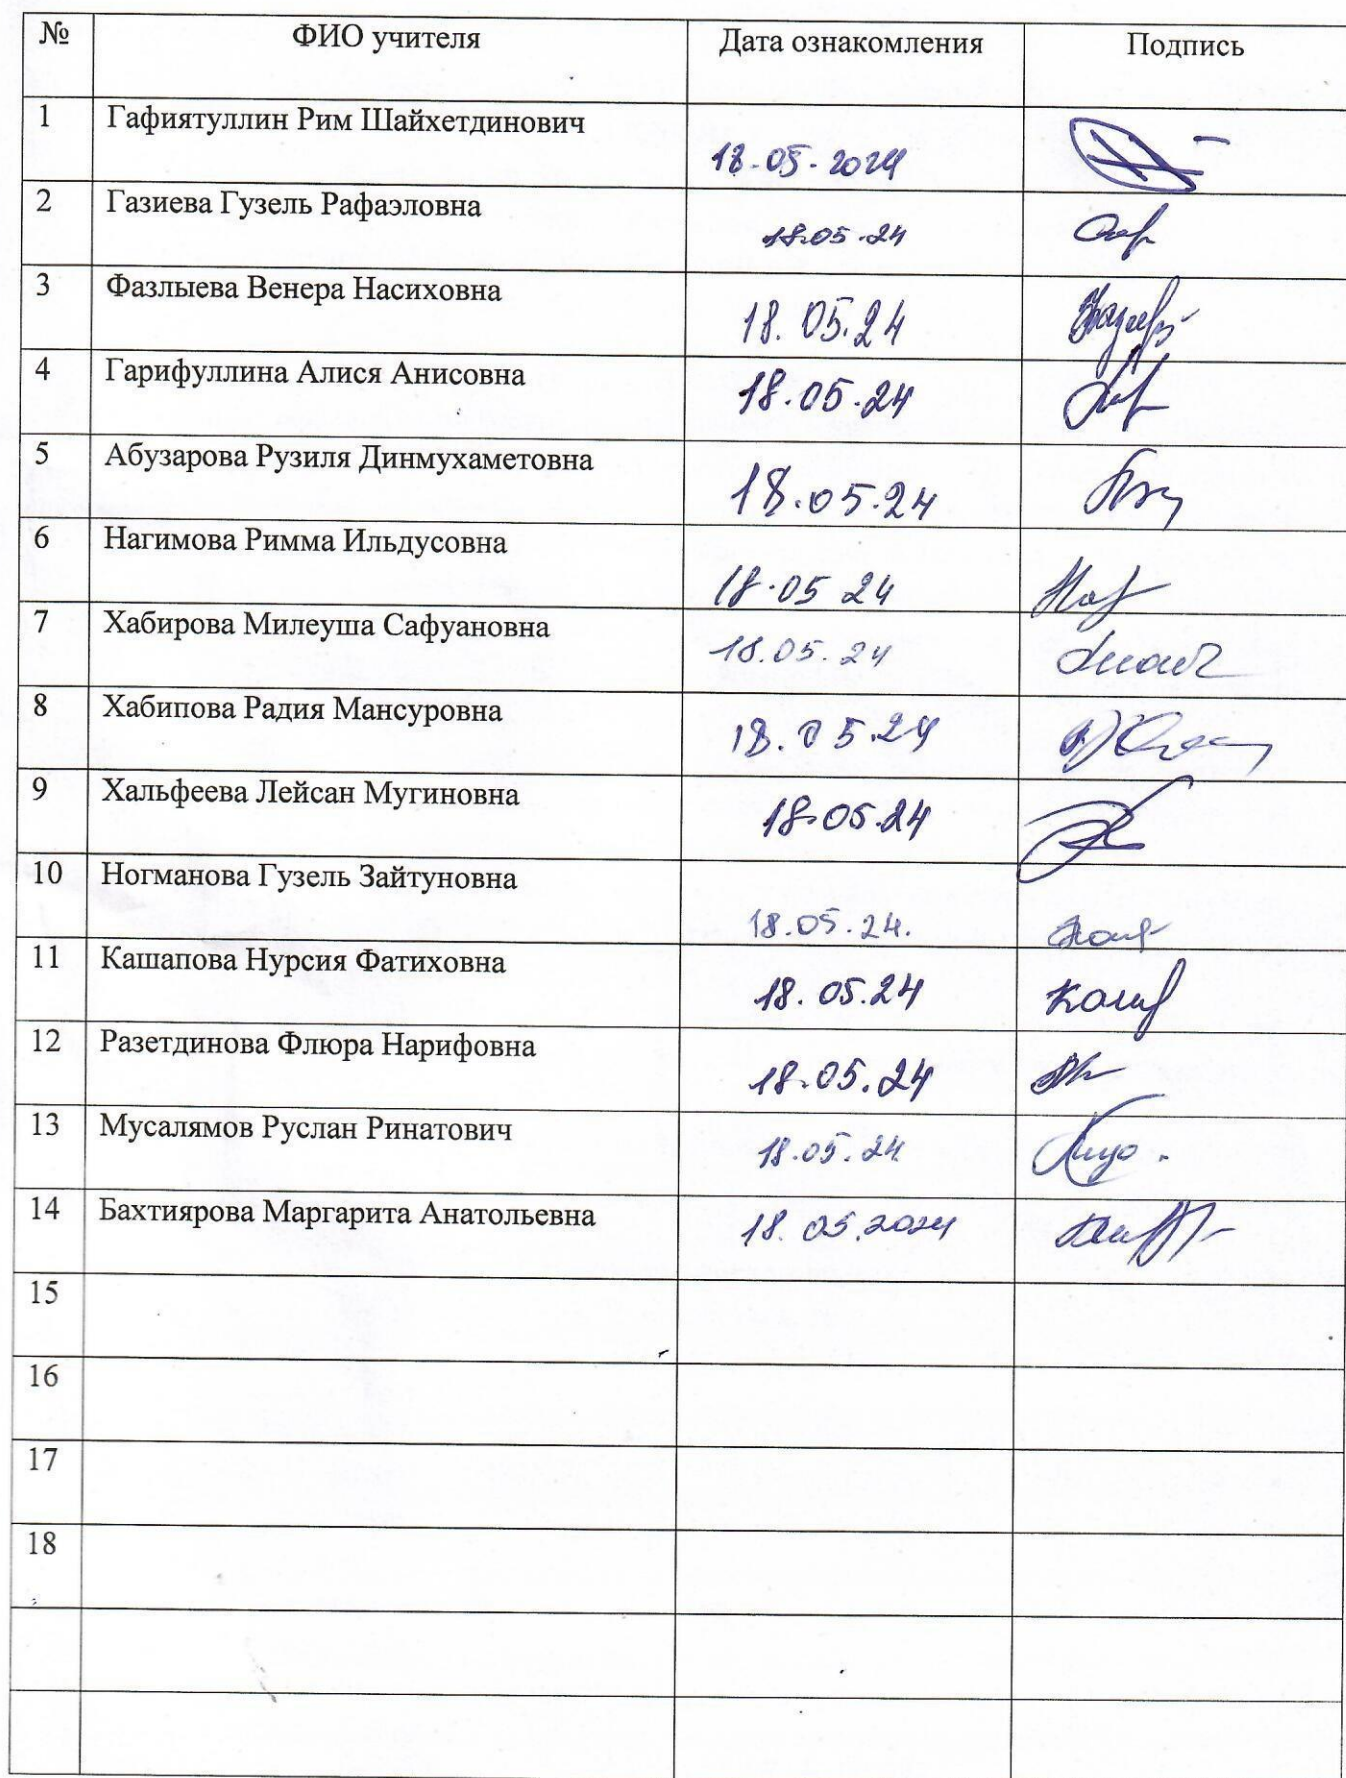 № ФИО учителя Дата ознакомления Подпись
1 Гафиятуллин Рим Шайхетдинович 18.05.2024
2 Газиева Гузель Рафаэловна 18.05.24
3 Фазлыева Венера Насиховна 18.05.24
4 Гарифуллина Алися Анисовна 18.05.24
5 Абузарова Рузиля Динмухаметовна 18.05.24
6 Нагимова Римма Ильдусовна 18.05 24
7 Хабирова Милеуша Сафуановна 18.05.24
8 Хабипова Радия Мансуровна 18.05.24
9 Хальфеева Лейсан Мугиновна 18.05.24
10 Ногманова Гузель Зайтуновна 18.05.24.
11 Кашапова Нурсия Фатиховна 18.05.24
12 Разетдинова Флюра Нарифовна 18.05.24
13 Мусалямов Руслан Ринатович 18.05.24
14 Бахтиярова Маргарита Анатольевна 18.05.2024
15
16
17
18